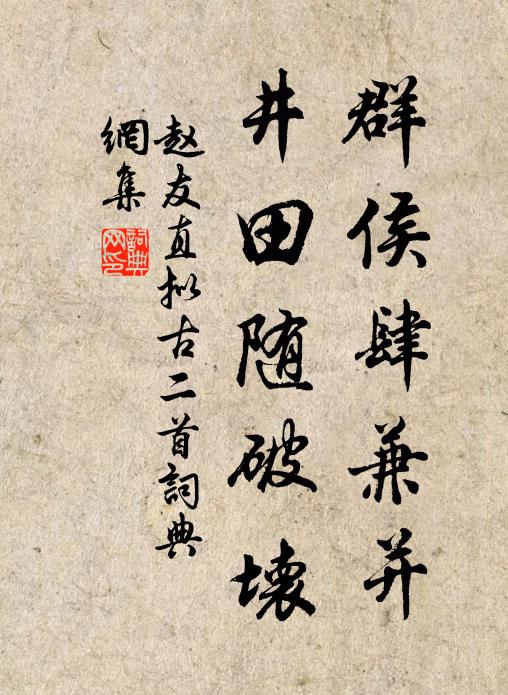 群侯肆兼并
井田随破壊
赵友直拟古二首詞典
網集
詞典
网印